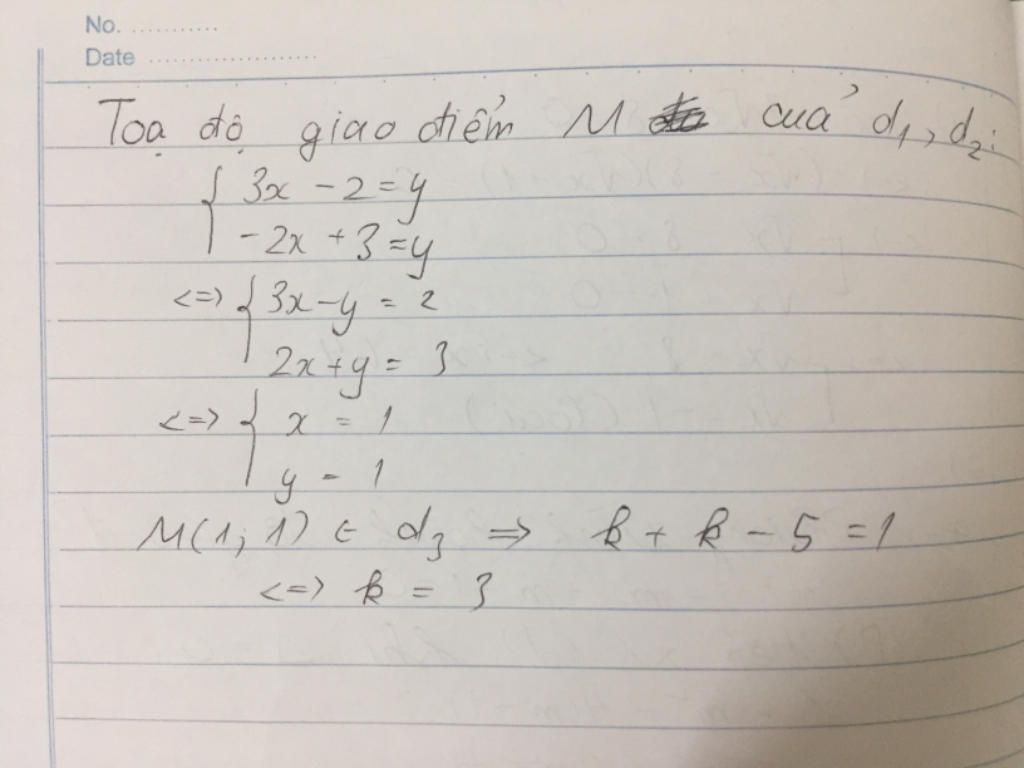 No. ............
Date ........................
Toạ độ giao điểm M của d₁, d₂:
{ 3x - 2 = y
-2x + 3 = y
<=> { 3x - y = 2
2x + y = 3
<=> { x = 1
y = 1
M(1; 1) ∈ d₃ => k + k - 5 = 1
<=> k = 3